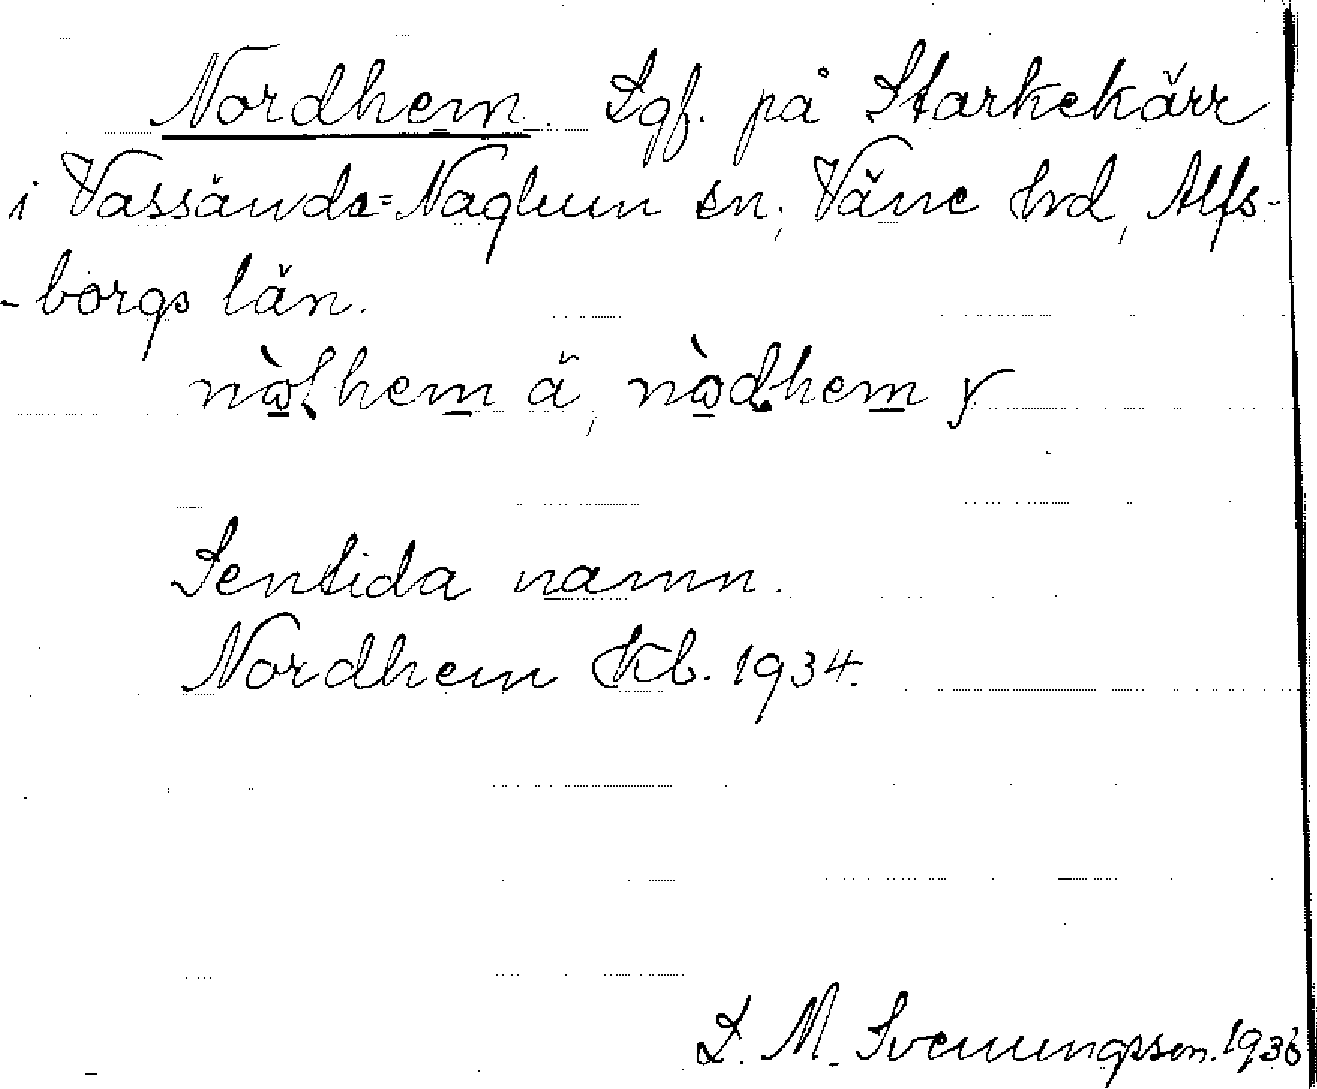 Nordhem. Lgf. på Starkekärr
i Vassända=Naglum sn, Väne hrd, Älfs-
-borgs län.
nò̱ɭhem̱ ä, nò̱ḍhem̱ y
Sentida namn.
Nordhem Kb. 1934.
S. M. Svenungsson. 1936